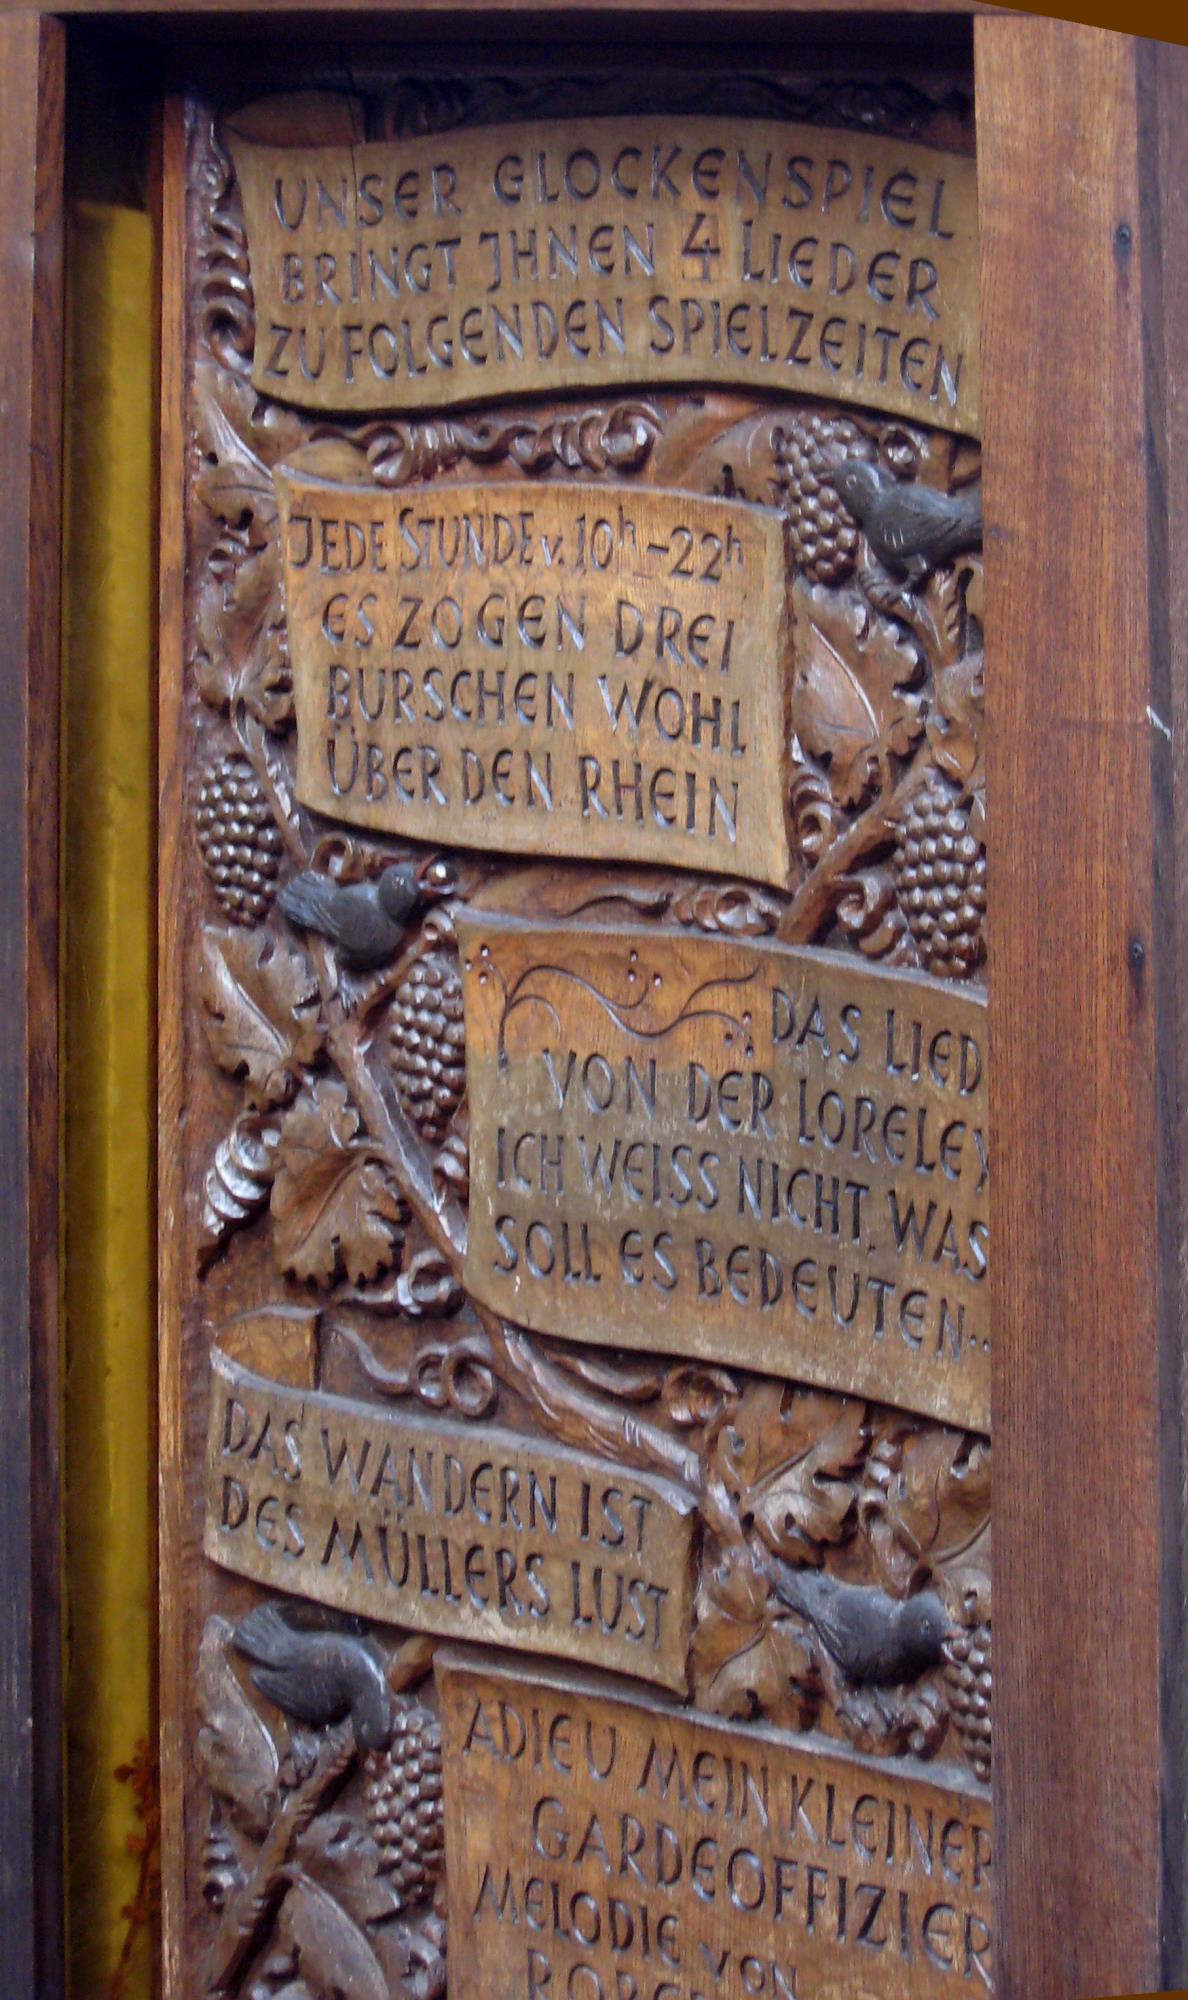 UNSER GLOCKENSPIEL
BRINGT JHNEN 4 LIEDER
ZU FOLGENDEN SPIELZEITEN
JEDE STUNDE v. 10h-22h
ES ZOGEN DREI
BURSCHEN WOHL
ÜBER DEN RHEIN
DAS LIED
VON DER LORELEY
ICH WEISS NICHT, WAS
SOLL ES BEDEUTEN..
DAS WANDERN IST
DES MÜLLERS LUST
ADIEU MEIN KLEINER
GARDEOFFIZIER
MELODIE VON